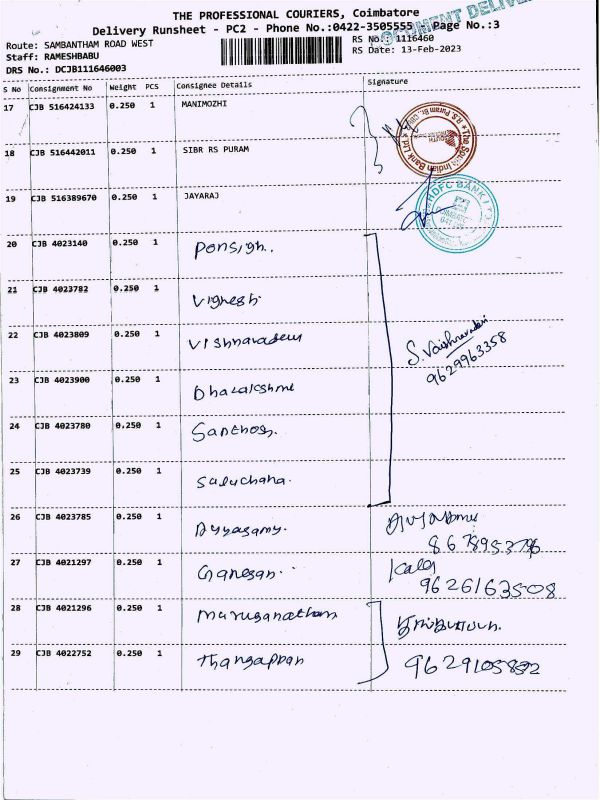 THE PROFESSIONAL COURIERS, Coimbatore
DOCUMENT DELIVER
Delivery Runsheet - PC2 - Phone No.:0422-3505555 - Page No.:3
Route: SAMBANTHAM ROAD WEST
RS No.: 1116460
Staff: RAMESHBABU
RS Date: 13-Feb-2023
DRS No.: DCJB111646003
S No Consignment No Weight PCS Consignee Details Signature
17 CJB 516424133 0.250 1 MANIMOZHI
The South Indian Bank Ltd R.S. Puram Br.
18 CJB 516442011 0.250 1 SIBR RS PURAM
19 CJB 516389670 0.250 1 JAYARAJ
HDFC BANK LTD
20 CJB 4023140 0.250 1 Ponsigh..
21 CJB 4023782 0.250 1 Vignesh.
22 CJB 4023809 0.250 1 Vishnavadevi
S. Vaishnavadevi
9629963358
23 CJB 4023900 0.250 1 Dhalakshmi
24 CJB 4023780 0.250 1 Santhosh.
25 CJB 4023739 0.250 1 Suluchana.
26 CJB 4023785 0.250 1 Ayyasamy.
27 CJB 4021297 0.250 1 Ganesan.
Kala
9626163508
28 CJB 4021296 0.250 1 Muruganatham
29 CJB 4022752 0.250 1 Thangappan